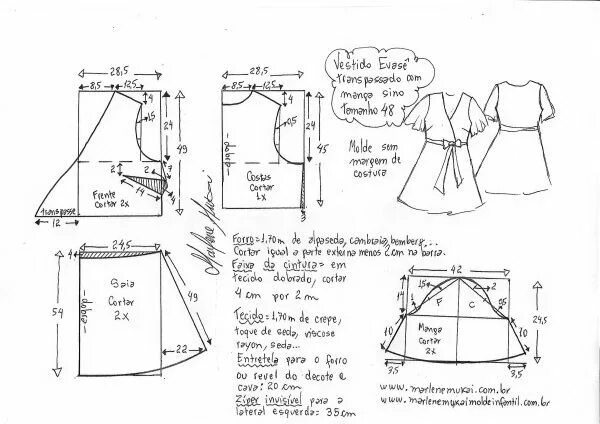 Vestido Evasê
transpassado com
manga sino
tamanho 48
Molde sem
margem de
costura
28,5
8,5
12,5
4
1,5
24
49
2
2
7
4
14
Frente
Cortar 2x
transpasse
12
28,5
4
0,5
24
45
dobra
Costas
Cortar
1x
3
Marlene Mukai
24,5
4
Saia
Cortar
2x
dobra
54
49
22
Forro=1,70m de alpaseda, cambraia, bemberg...
Cortar igual a parte externa menos 2cm na barra.
Faixa da cintura= em
tecido dobrado, cortar
4 cm por 2 m
Tecido=1,70m de crepe,
toque de seda, viscose
rayon, seda...
Entretela para o forro
ou revel do decote e
cava: 20 cm
Zíper invisível para a
lateral esquerda: 35cm
42
14
1,5
F
C
2
0,5
24,5
10
Manga
Cortar
2x
10
3,5
3,5
www.marlenemukai.com.br
www.marlenemukaimoldeinfantil.com.br